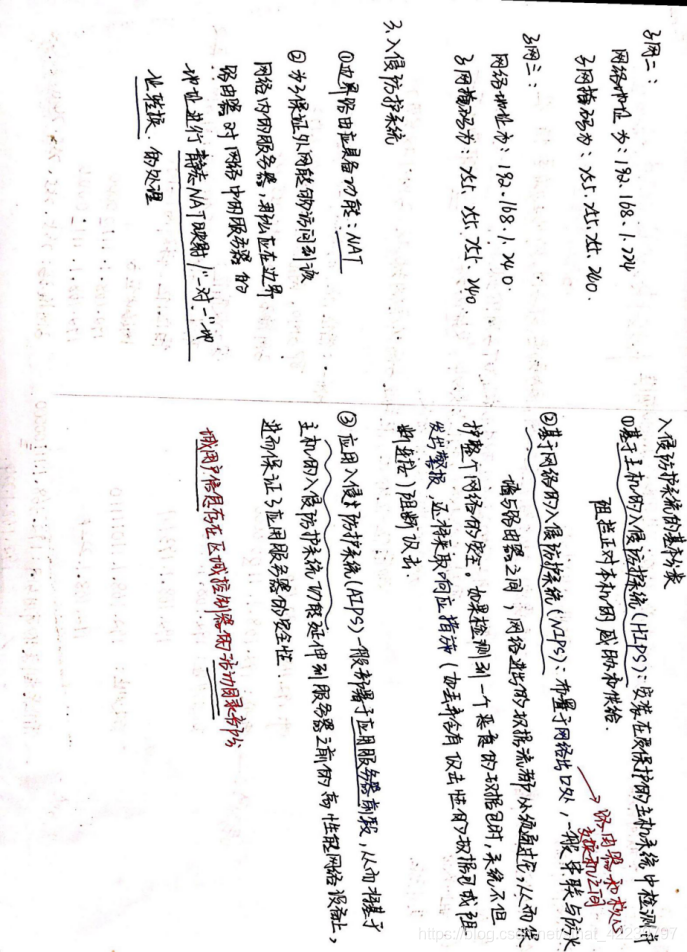 子网二:
网络地址为: 192.168.1.224
子网掩码为: 255.255.255.240.
子网三:
网络地址为: 192.168.1.240.
子网掩码为: 255.255.255.240.
3.入侵防护系统
①边界路由应具备功能: NAT
②为了保证外网能够访问到该
网络内的服务器,那么应在边界
路由器对网络中的服务器的
地址进行静态NAT映射/"一对一"地
址转换、的处理
入侵防护系统的基本分类
①基于主机的入侵防护系统(HIPS): 安装在受保护的主机系统中检测并
阻拦正对本机的威胁和供给.
②基于网络的入侵防护系统(NIPS): 布置于网络出口处,一般串联与防火
墙与路由器之间,网络进出的数据流都必须通过它,从而保
护整个网络的安全。如果检测到一个恶意的数据包时,系统不但
发出警报,还将采取响应措施(如丢弃含有攻击性的数据包或阻
断连接)阻断攻击.
→路由器和核心
交换机之间
③应用入侵防护系统(AIPS)一般部署于应用服务器前段,从而将基于
主机的入侵防护系统功能延伸到服务器之前的高性能网络设备上,
进而保证了应用服务器的安全性.
域用户信息存在区域控制器的活动目录部分